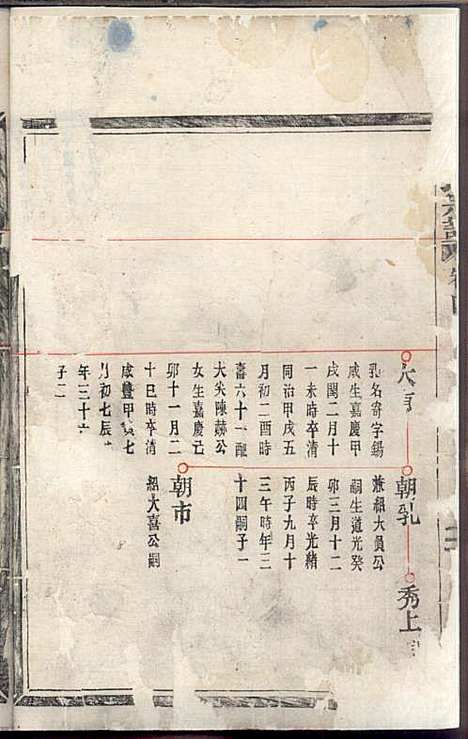 乳名寄字錫
咸生嘉慶甲
戌閏二月十
一未時卒清
同治甲戌五
月初二酉時
壽六十一配
大尖陳赫公
女生嘉慶己
卯十一月二
十巳時卒清
咸豐甲寅七
月初七辰
年三十六
子二
朝乳
兼紹大員公
嗣生道光癸
卯三月十二
辰時卒光緒
丙子九月十
三午時年三
十四嗣子一
秀上
朝市
紹大喜公嗣